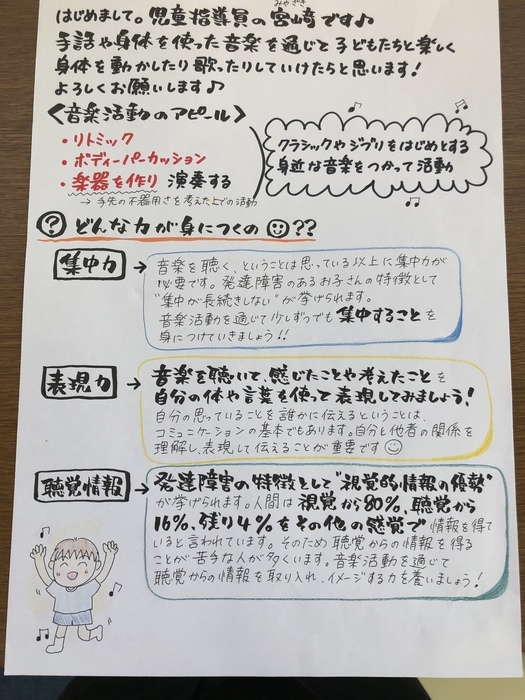 みやざき
はじめまして。児童指導員の宮﨑です♪
手話や身体を使った音楽を通じて子どもたちと楽しく
身体を動かしたり歌ったりしていけたらと思います!
よろしくお願いします♪
〈音楽活動のアピール〉
・リトミック
・ボディーパーカッション
・楽器を作り 演奏する
→ 手先の不器用さを考えた上での活動
クラシックやジブリをはじめとする
身近な音楽をつかって活動
? どんな力が身につくの ??
集中力
音楽を聴く、ということは思っている以上に集中力が
必要です。発達障害のあるお子さんの特徴として
"集中が長続きしない"が挙げられます。
音楽活動を通じて少しずつでも集中することを
身につけていきましょう!!
表現力
音楽を聴いて、感じたことや考えたことを
自分の体や言葉を使って表現してみましょう!
自分の思っていることを誰かに伝えるということは、
コミュニケーションの基本でもあります。自分と他者の関係を
理解し、表現して伝えることが重要です
聴覚情報
発達障害の特徴として"視覚的情報の優勢"
が挙げられます。人間は視覚から80%、聴覚から
16%、残り4%をその他の感覚で情報を得て
いると言われています。そのため聴覚からの情報を得る
ことが苦手な人が多くいます。音楽活動を通じて
聴覚からの情報を取り入れ、イメージする力を養いましょう!